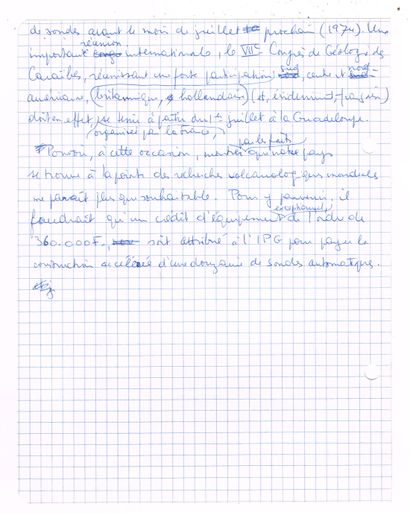 de sondes avant le mois de juillet prochain (1974). Une
importante réunion internationale, le VIIe Congrès de Géologie des
Caraïbes, réunissant une forte participation sud, centre et nord-
américaine, (britannique, hollandaise) (et, évidemment, française)
doit en effet, se tenir à partir du 1er juillet à la Guadeloupe.
organisée par la France,
Pouvoir, à cette occasion, montrer par les faits que notre pays
se trouve à la pointe de recherche volcanologique mondiale
ne paraît plus que souhaitable. Pour y parvenir, il
faudrait qu'un crédit d'équipement exceptionnel de l'ordre de
360.000F. soit attribué à l'IPG pour payer la
construction accélérée d'une douzaine de sondes automatiques.